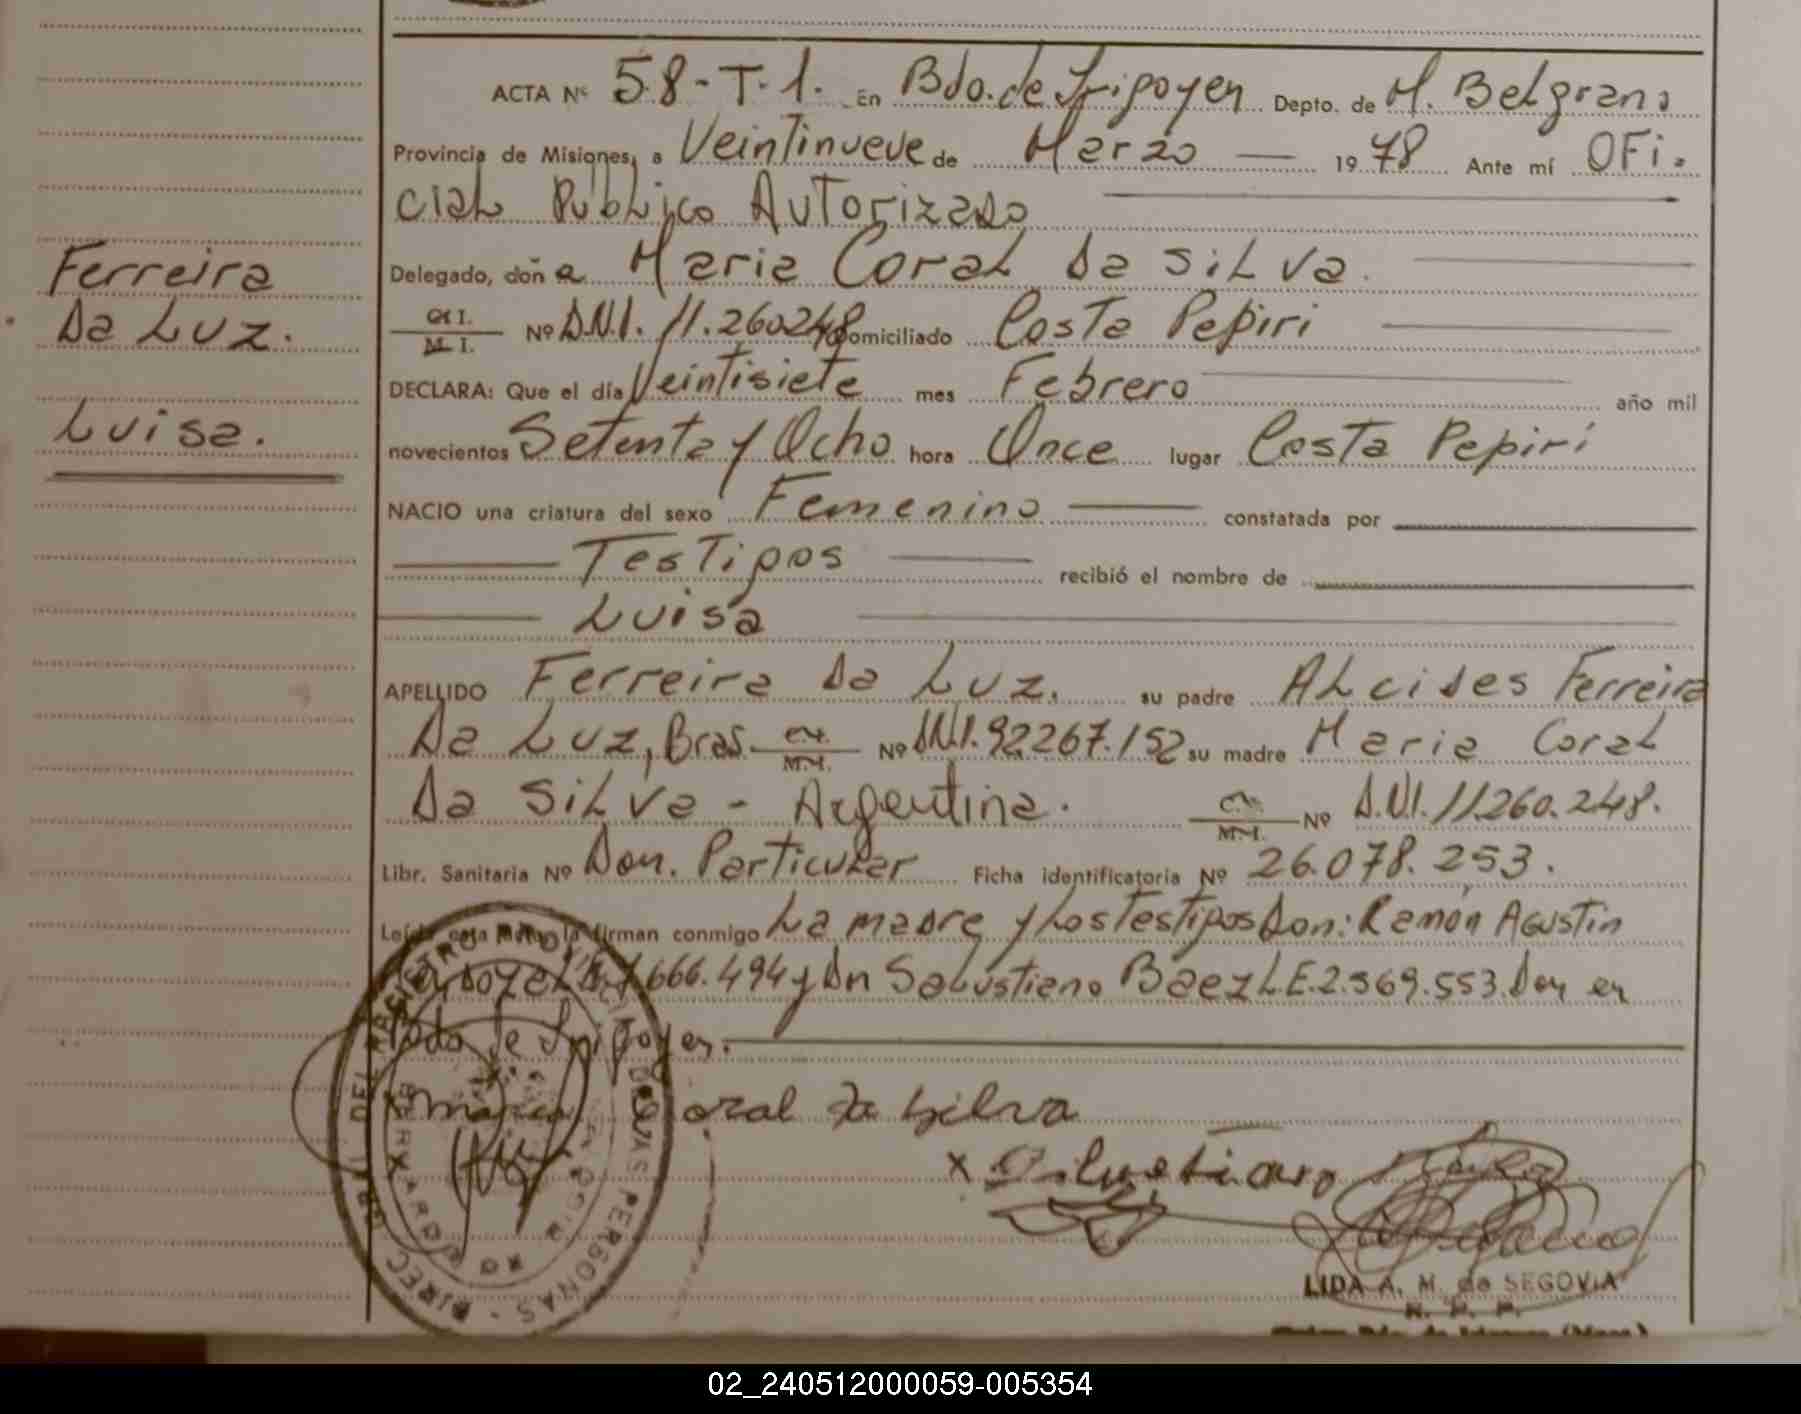 ACTA Nº 58-T-1. En Bdo. de Irigoyen Depto. de M. Belgrano
Provincia de Misiones, a Veintinueve de Marzo 1978 Ante mí OFi.
ciaL PúbLico AuTorizado
Delegado, doña Maria CoraL Da SiLva.
C.I.
M.I.
Nº D.N.I. 11.260248 domiciliado Costa Pepiri
DECLARA: Que el día Veintisiete mes Febrero año mil
novecientos Setenta y Ocho hora Once lugar Costa Pepiri
NACIO una criatura del sexo Femenino constatada por
Testigos recibió el nombre de
Luisa
APELLIDO Ferreira Da Luz. su padre ALcides Ferreira
Da Luz, Bras. M.I. Nº D.N.I. 92267.152 su madre Maria CoraL
Da SiLva - Argentina. M.I. Nº D.N.I. 11260.248.
Libr. Sanitaria Nº Dom. Particular Ficha identificatoria Nº 26.078.253.
Leída esta Acta, la firman conmigo La madre y Los Testigos Don: Ramón Agustin
666.494 y Dn Salustiano Baez L.E. 2.369.553. Dom en
Bdo de Irigoyen.
Maria Coral Da Silva
X
LIDA A. M. de SEGOVIA
Ferreira
Da Luz.
Luisa.
REGISTRO PROVINCIAL DE LAS PERSONAS
02_240512000059-005354